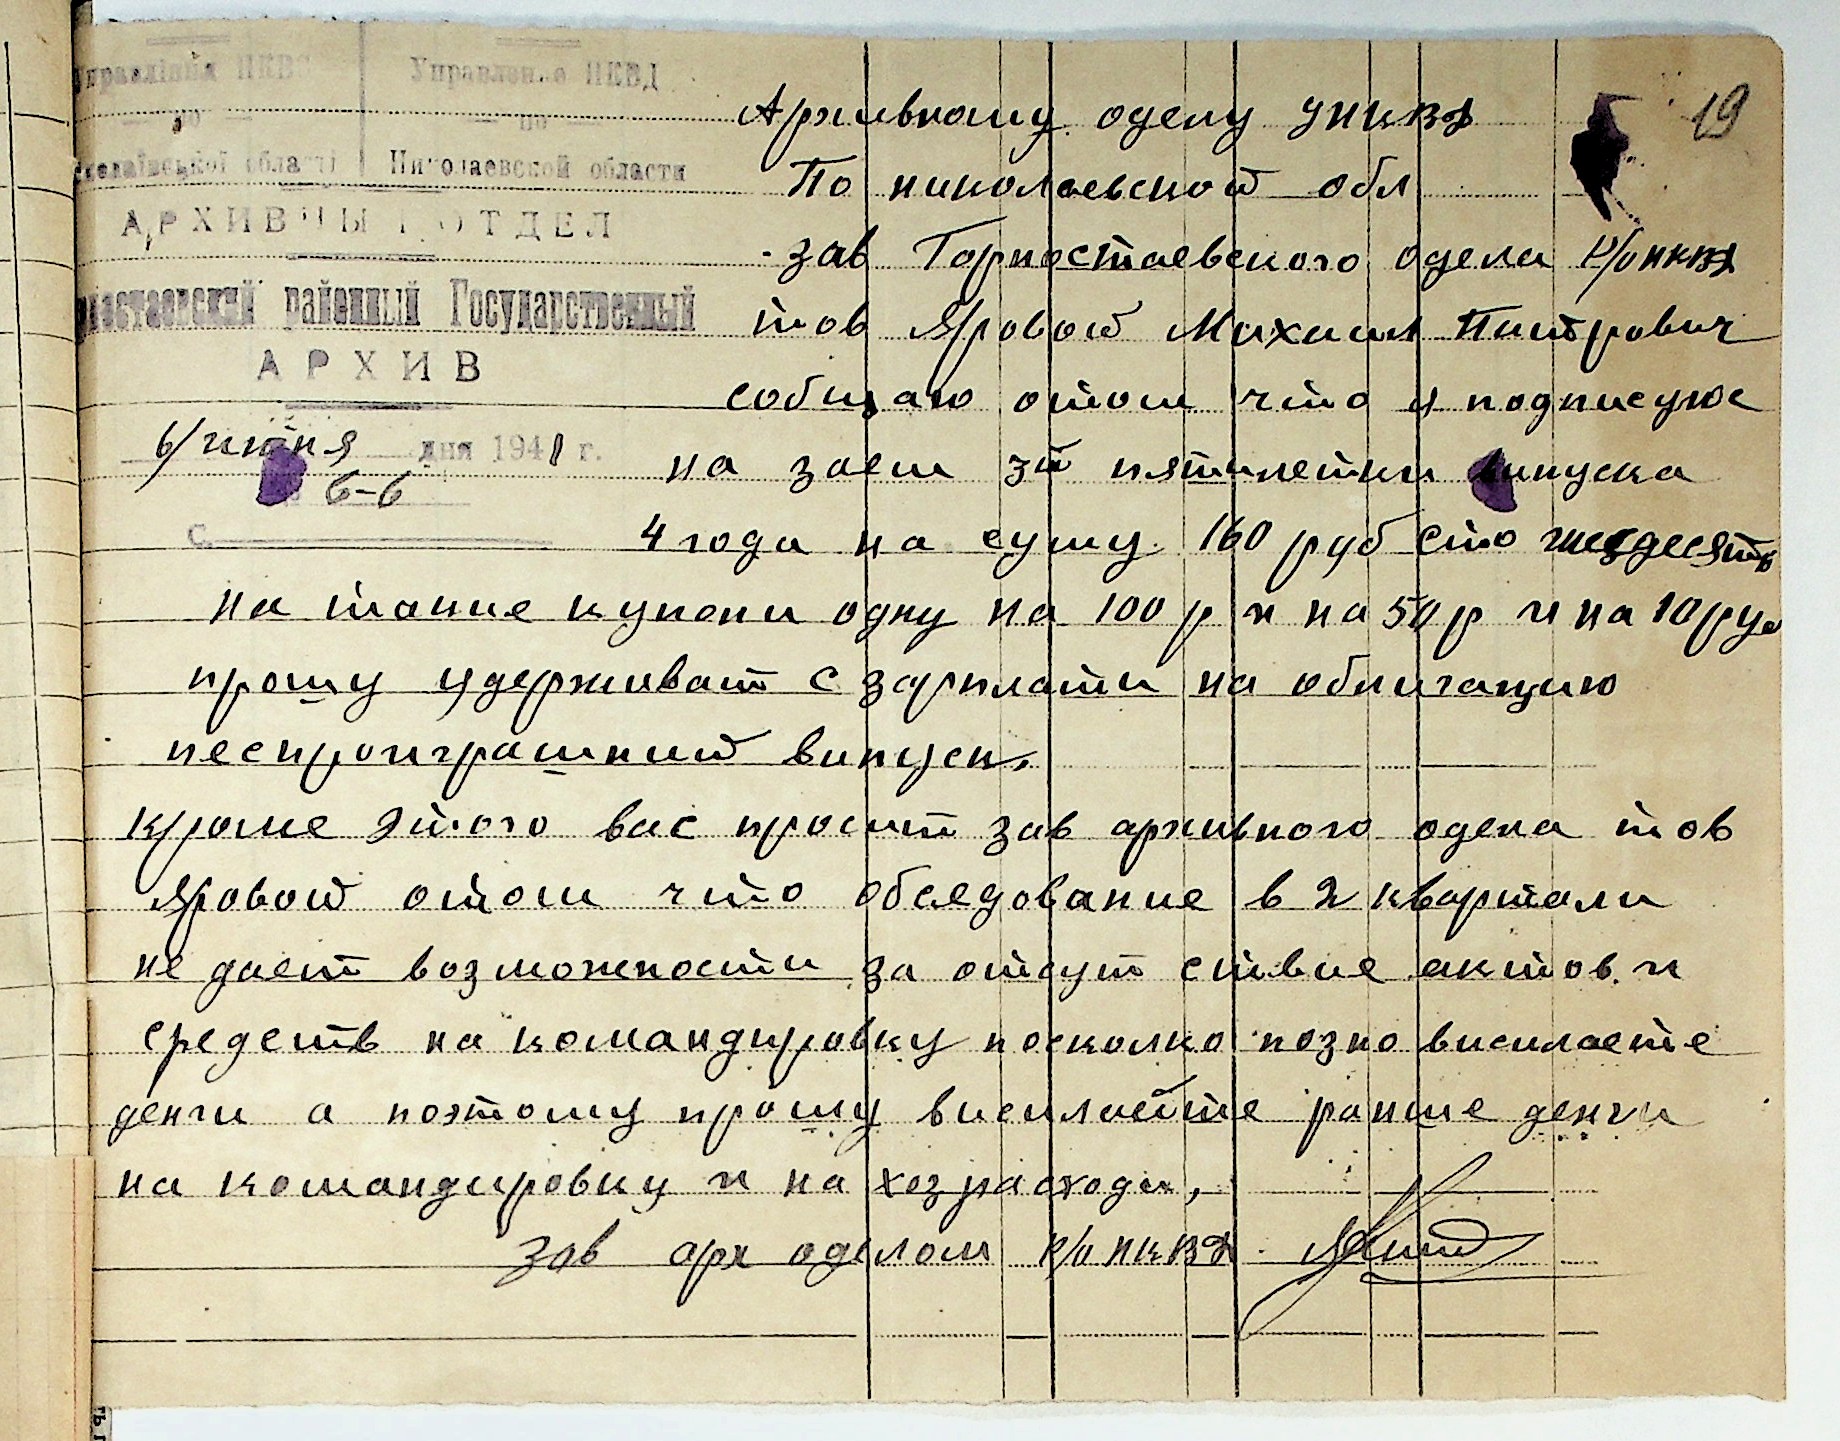 19
Управління НКВС
Управление НКВД
по
по
Миколаївської області
Николаевской области
АРХИВНЫЙ ОТДЕЛ
районный Государственный
АРХИВ
6/июня дня 1941 г.
6-6
Архивному оделу УНКВД
По николаевской обл
зав Горностаевского одела Р/О НКВД
тов Яровой Михаил Питрович
собщаю отом что я подписуюс
на заем 3й пятилетки випуска
4 года на суму 160 руб сто шездесять
на такие купони одну на 100 р и на 50 р и на 10 руб
прошу удерживат с зарплати на облигацию
неспроиграшний випуск.
кроме этого вас просит зав архивного одела тов
Яровой отом что обследование в 2 квартали
не дает возможности за отсут ствие актов и
средств на командировку посколко позно висилаете
денги а поэтому прошу висилайте ранше денги
на командировку и на хозрасходи,
зав арх оделом Р/О НКВД